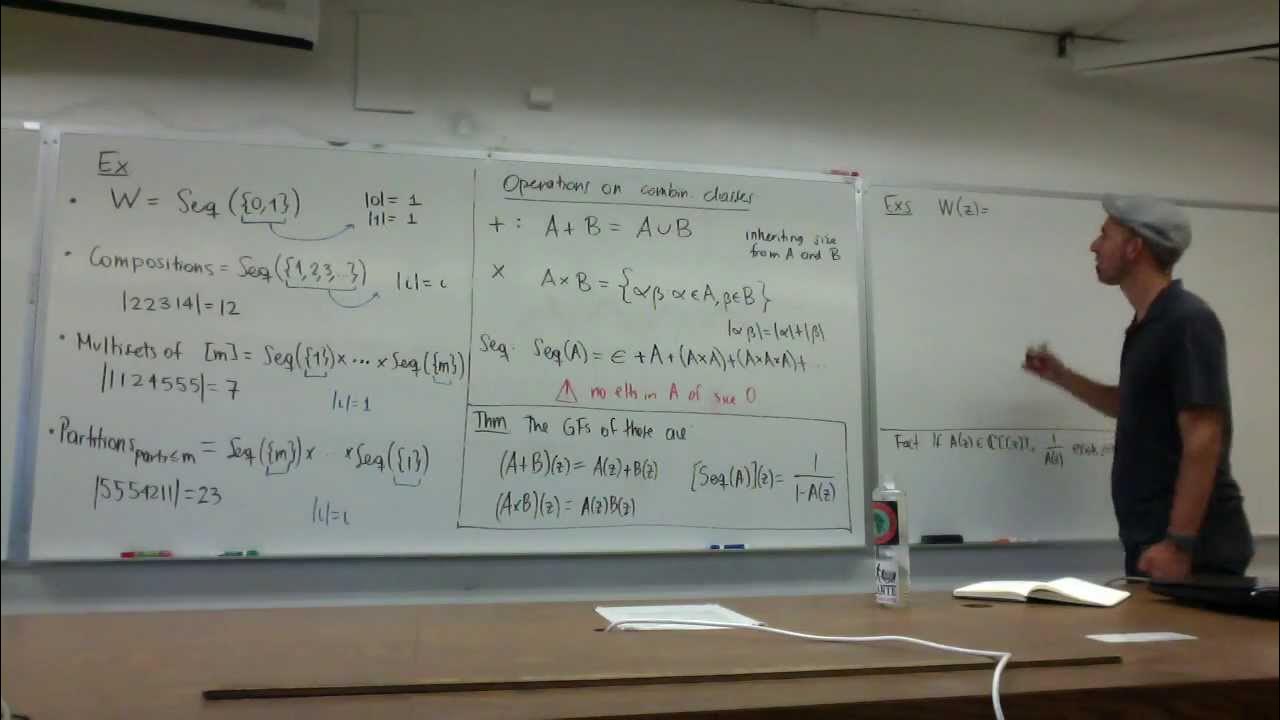 Ex
• W = Seq ({0,1})
|0| = 1
|1| = 1
• Compositions = Seq({1,2,3,...})
|i| = i
|22314| = 12
• Multisets of [m] = Seq({1})× ... ×Seq({m})
|1124555| = 7
|i| = 1
• Partitions parts≤m = Seq({m})× ... ×Seq({1})
|5554211| = 23
|i| = i
Operations on combin. classes
+ : A + B = A ∪ B
inheriting size
from A and B
× A × B = {αβ : α ∈ A, β ∈ B}
|αβ| = |α| + |β|
Seq. Seq(A) = ∈ + A + (A×A) + (A×A×A) + ...
⚠ no elts in A of size 0
Thm The GFs of those are
(A+B)(z) = A(z) + B(z)
[Seq(A)](z) = 1/(1-A(z))
(A×B)(z) = A(z)B(z)
Exs W(z)=
Fact If A(z) ∈ ℂ[[z]], 1/A(z) exists
ANTE